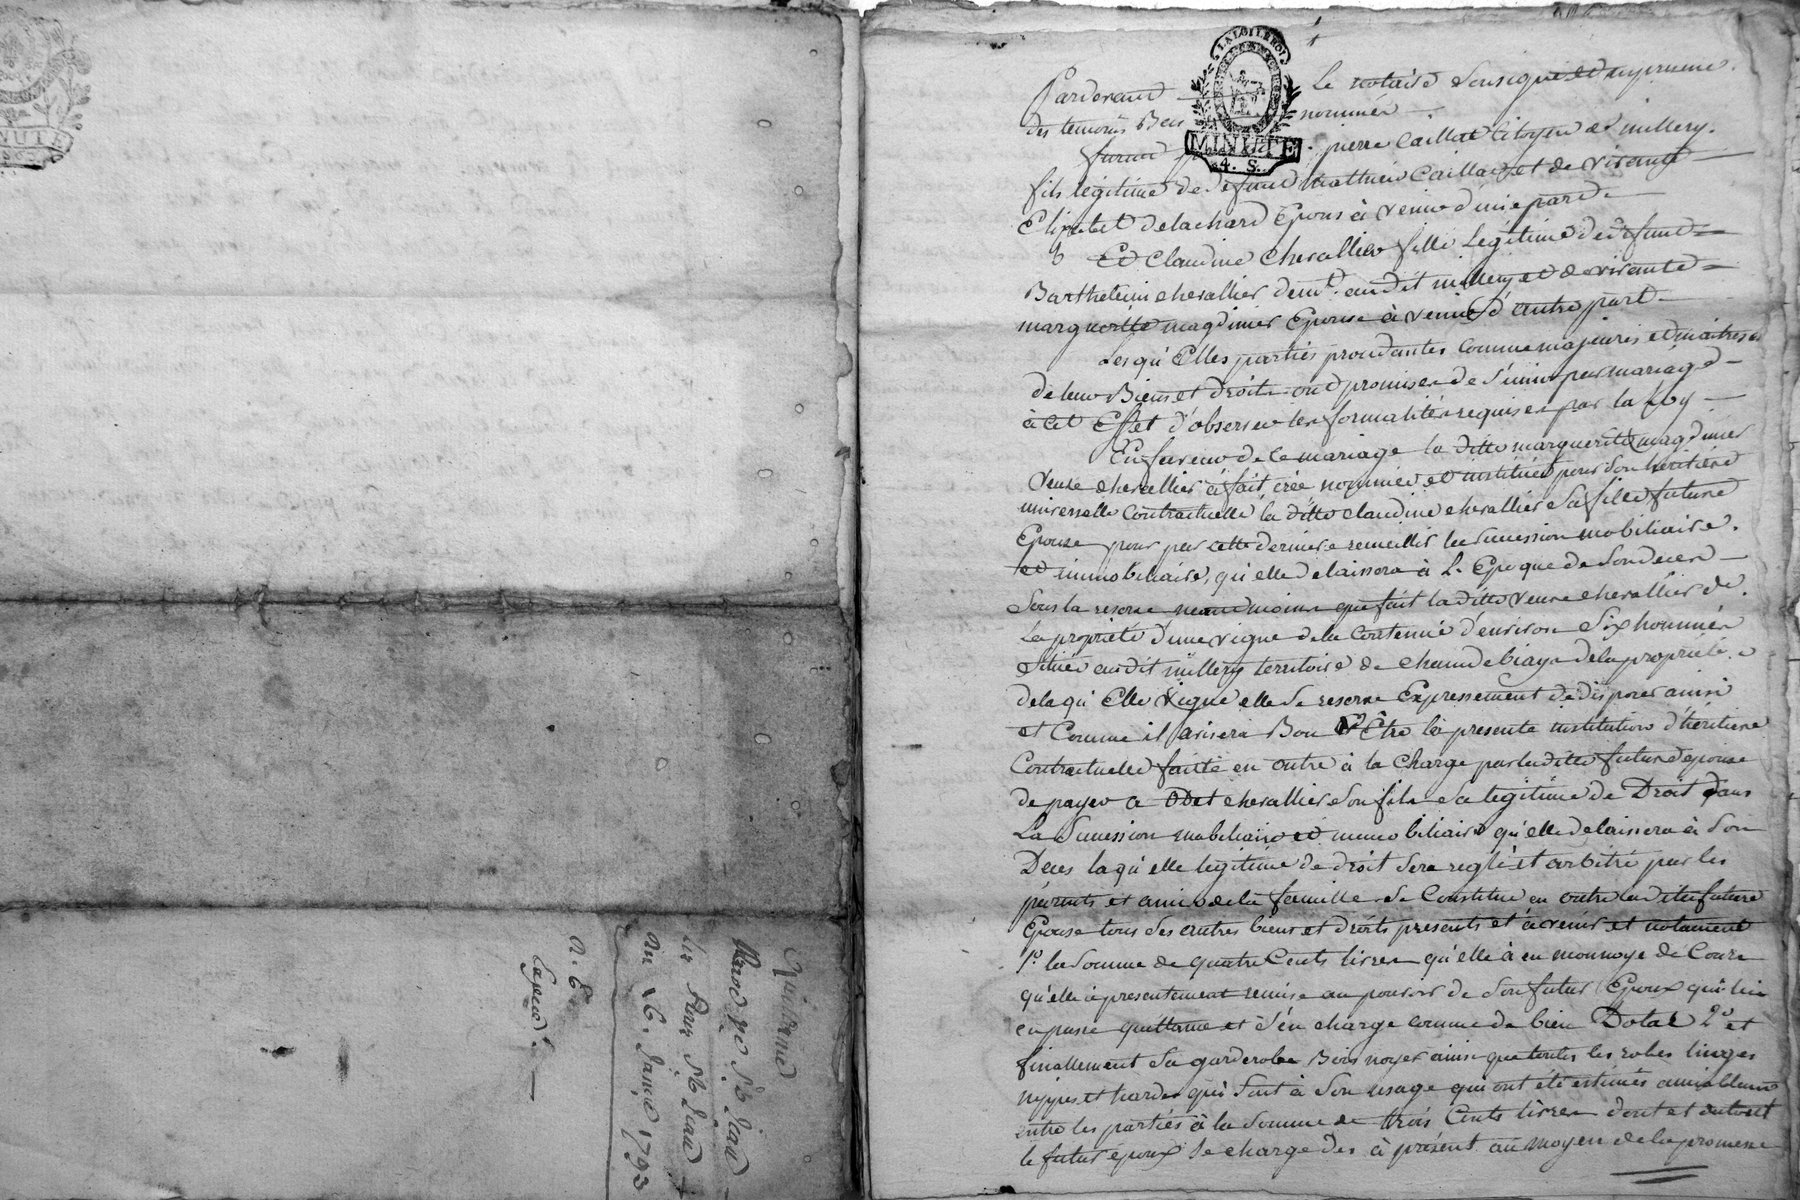 Quittance
St Jean
Sr Pierre St Jean
du 26. Janvr 1793
n. E
LA LOI LE ROI
MINUTE
4. S.
Pardevant Le notaire soussigné et en presence
des temoins Bas nommés
furent pierre Caillat Citoyen de millery.
fils legitime de defunt mathieu Caillat et de vivante
Elizabet delachard Epoux à venir d'une part
Et Claudine Chevallier fille Legitime de defunt
Barthelemi chevallier demt. audit millery et de vivante
marguerite magdinier Epouse à venir d'autre part
Lesqu'Elles parties procedantes comme majeures et maitresses
de leurs Biens et droits ont promises de s'unir par mariage
à cet Effet d'observer les formalités requises par la Loy
En faveur de ce mariage la ditte marguerite magdinier
Veuve chevallier à fait crée nommée et instituée pour son héritière
universelle contractuelle la ditte claudine chevallier sa fille future
Epouse pour par cette derniere recueillir la succession mobiliaire.
et immobiliaire, qu'elle delaissera à L'Epoque de son deces
Sous la reserve neanmoins que fait la ditte veuve chevallier de
La propriété d'une vigne de la contenue d'environ six hommées
située audit millery territoire de de la propriété
de laqu'Elle vigne elle se reserve Expressement de disposer ainsi
et Comme il avisera Bon Etre la presente institution d'héritiere
Contractuelle faitte en outre à la charge par la ditte future épouse
de payer a Odet chevallier son fils sa legitime de Droit dans
La Succession mobiliaire et immobiliaire qu'elle delaissera à son
Deces laqu'elle legitime de droit sera reglé et arbitré par les
parents et amis de la famille se Constitue en outre la ditte future
Epouse tous ses autres biens et droits presents et à venir et notament
1o la somme de quatre Cents livres qu'elle à en monnoye de Cours
qu'elle à presentement remise au pouvoir de son futur Epoux qui lui
en passe quittance et s'en charge comme de bien Dotal 2o et
finallement sa garderobe Bois noyer ainsi que toutes les robes linges
nippes et hardes qui sont à son usage qui ont été estimés amiablement
entre les parties à la somme de trois Cents livres dont et du tout
le futur époux se charge des à présent au moyen de la promesse